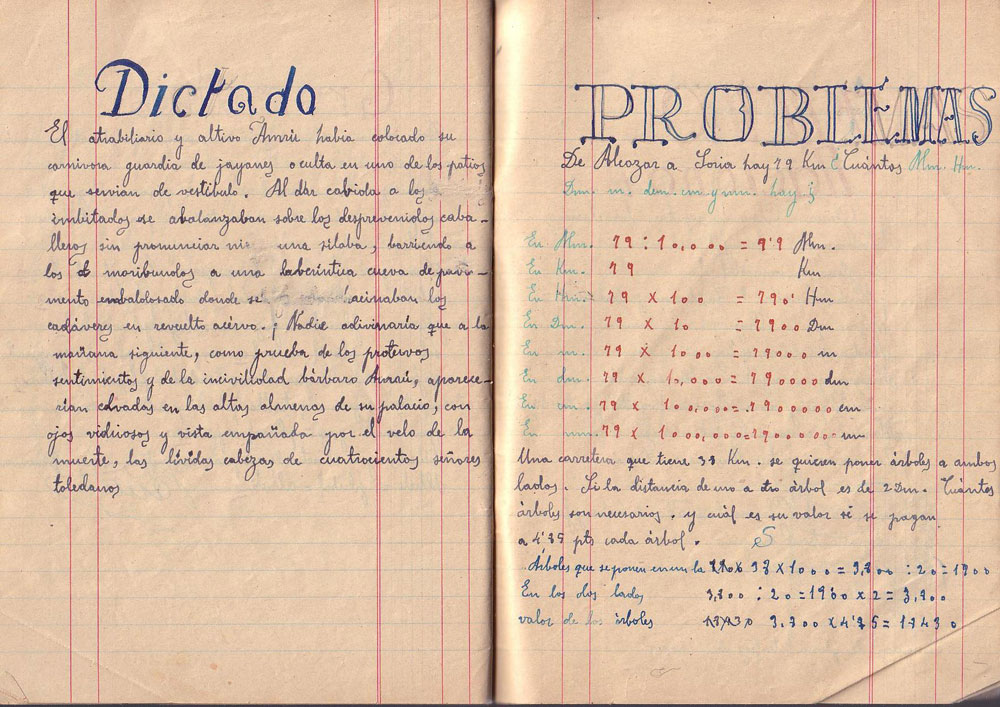 Dictado
El atrabiliario y altivo Amrú habia colocado su
carnivora guardia de jayanes oculta en uno de los patios
que servian de vestibulo. Al dar cabida a los
imbitados se abalanzaban sobre los desprevenidos caba-
lleros sin pronunciar ni una silaba, barriendo a
los moribundos a una laberíntica cueva de pavi-
mento embaldosado donde se hacinaban los
cadáveres en revuelto acérvo. ¡Nadie adivinaría que a la
mañana siguiente, como prueba de los protervos
sentimientos y de la incivilidad bárbaro Amrú, aparece-
rian clavadas en las altas almenas de su palacio, con
ojos vidriosos y vista empañada por el velo de la
muerte, las lívidas cabezas de cuatrocientos señores
toledanos
PROBLEMAS
De Alcozar a Soria hay 79 Km ¿Cuántos Mm. Hm.
Dm. m. dcm. cm y mm. hay?
En Mm. 79 : 10,000 = 9'9 Mm.
En Km. 79 Km
En Hm. 79 x 100 = 790' Hm
En Dm. 79 x 10 = 7900 Dm
En m. 79 x 1000 = 79000 m
En dm. 79 x 10,000 = 790000 dm
En cm. 79 x 100,000 = 7900000 cm
En mm. 79 x 1000,000 = 79000000 mm
Una carretera que tiene 38 Km. se quieren poner árboles a ambos
lados. Si la distancia de uno a otro árbol es de 2 Dm. Cuántos
árboles son necesarios. y cuál es su valor si se pagan
a 4'85 pts cada árbol. S
Árboles que se ponen en un la 38 x 1000 = 3,800 : 20 = 1900
En los dos lados 3,800 : 20 = 1900 x 2 = 3,800
valor de los árboles 3.800 x 4'85 = 18430